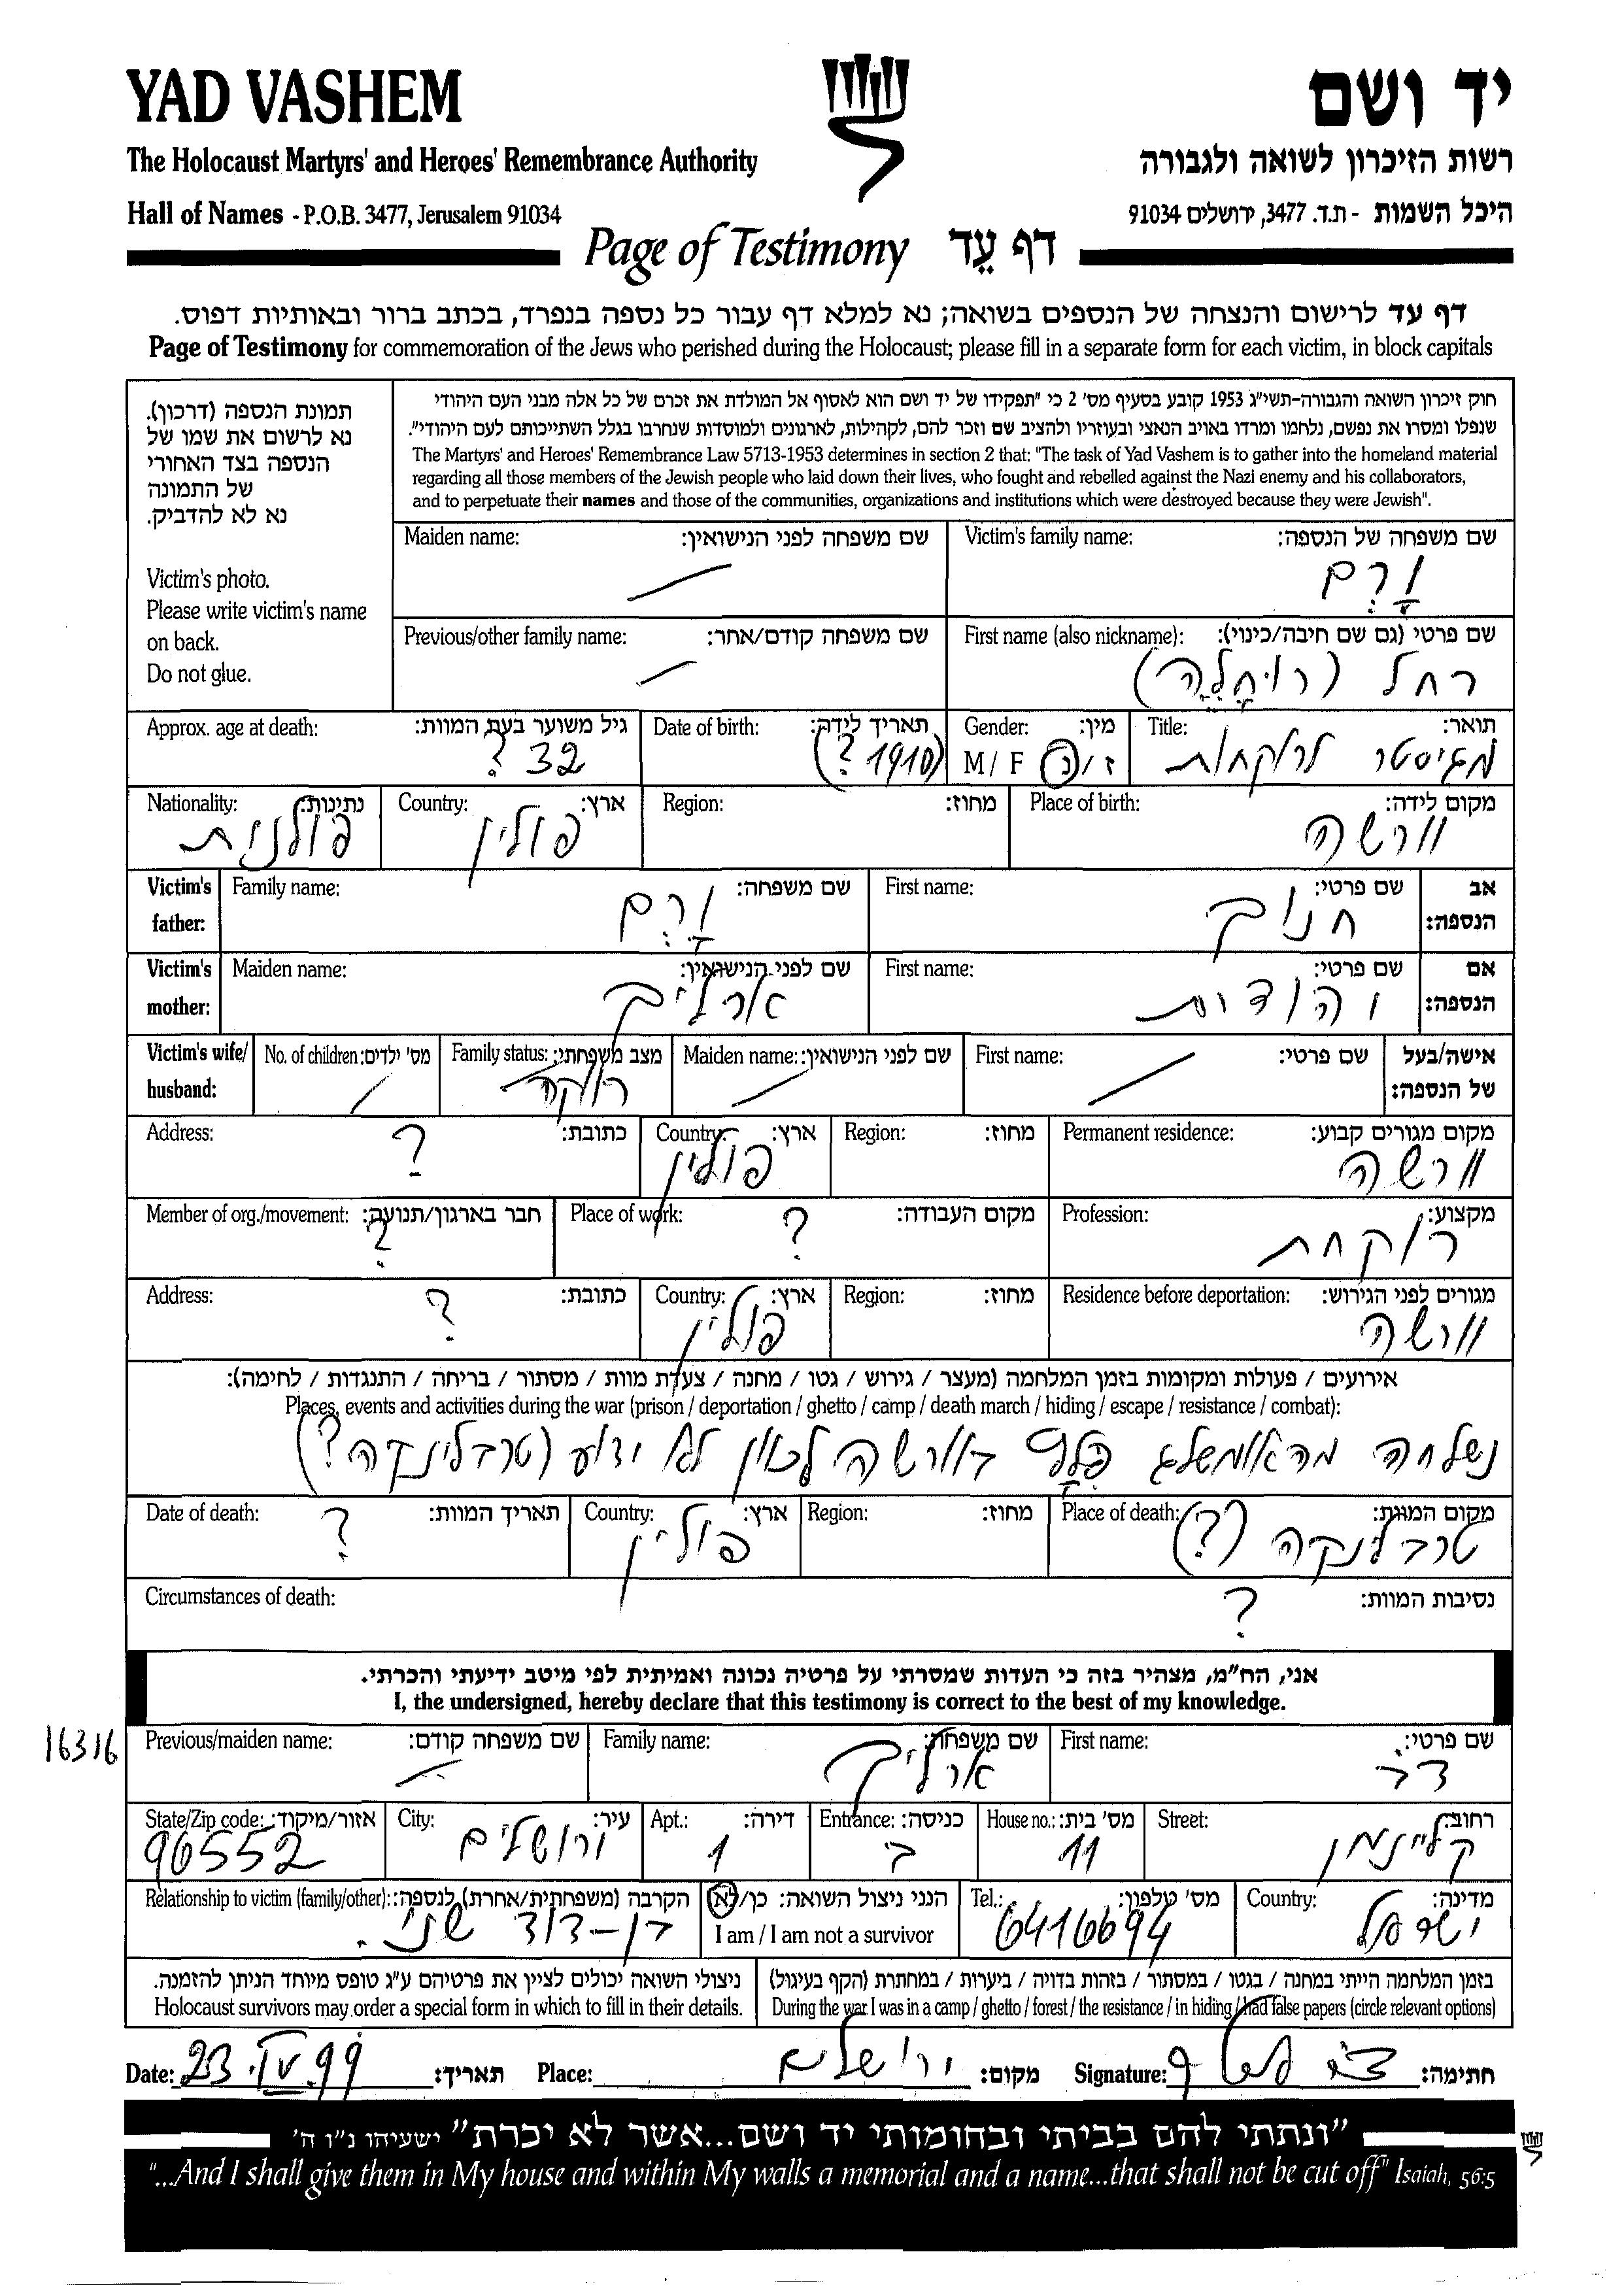 YAD VASHEM
יד ושם
The Holocaust Martyrs' and Heroes' Remembrance Authority
רשות הזיכרון לשואה ולגבורה
Hall of Names - P.O.B. 3477, Jerusalem 91034
היכל השמות - ת.ד. 3477, ירושלים 91034
Page of Testimony דף עֵד
דף עד לרישום והנצחה של הנספים בשואה; נא למלא דף עבור כל נספה בנפרד, בכתב ברור ובאותיות דפוס.
Page of Testimony for commemoration of the Jews who perished during the Holocaust; please fill in a separate form for each victim, in block capitals
תמונת הנספה (דרכון).
נא לרשום את שמו של
הנספה בצד האחורי
של התמונה
נא לא להדביק.
Victim's photo.
Please write victim's name
on back.
Do not glue.
חוק זיכרון השואה והגבורה-תשי"ג 1953 קובע בסעיף מס' 2 כי "תפקידו של יד ושם הוא לאסוף אל המולדת את זכרם של כל אלה מבני העם היהודי
שנפלו ומסרו את נפשם, נלחמו ומרדו באויב הנאצי ובעוזריו ולהציב שם וזכר להם, לקהילות, לארגונים ולמוסדות שנחרבו בגלל השתייכותם לעם היהודי".
The Martyrs' and Heroes' Remembrance Law 5713-1953 determines in section 2 that: "The task of Yad Vashem is to gather into the homeland material
regarding all those members of the Jewish people who laid down their lives, who fought and rebelled against the Nazi enemy and his collaborators,
and to perpetuate their names and those of the communities, organizations and institutions which were destroyed because they were Jewish".
Maiden name: שם משפחה לפני הנישואין: Victim's family name: שם משפחה של הנספה:
וָרְם
Previous/other family name: שם משפחה קודם/אחר: First name (also nickname): שם פרטי (גם שם חיבה/כינוי):
רחל (רוּחָלֶה)
Approx. age at death: גיל משוער בעת המוות: Date of birth: תאריך לידה: Gender: מין: Title: תואר:
32 ? (1910 ?) M / F ז / נ מגיסטר לרוקחות
Nationality: נתינות: Country: ארץ: Region: מחוז: Place of birth: מקום לידה:
פולנית פולין וורשה
Victim's father: Family name: שם משפחה: First name: שם פרטי: אב הנספה:
וָרְם חנוך
Victim's mother: Maiden name: שם לפני הנישואין: First name: שם פרטי: אם הנספה:
ארליך יהודית
Victim's wife/ husband: No. of children: מס' ילדים: Family status: מצב משפחתי: Maiden name: שם לפני הנישואין: First name: שם פרטי: אישה/בעל של הנספה:
רווקה
Address: כתובת: Country: ארץ: Region: מחוז: Permanent residence: מקום מגורים קבוע:
? פולין וורשה
Member of org./movement: חבר בארגון/תנועה: Place of work: מקום העבודה: Profession: מקצוע:
? ? רוקחת
Address: כתובת: Country: ארץ: Region: מחוז: Residence before deportation: מגורים לפני הגירוש:
? פולין וורשה
אירועים / פעולות ומקומות בזמן המלחמה (מעצר / גירוש / גטו / מחנה / צעדת מוות / מסתור / בריחה / התנגדות / לחימה):
Places, events and activities during the war (prison / deportation / ghetto / camp / death march / hiding / escape / resistance / combat):
נשלחה מהאומשלג פלץ בוורשה לכוון לא ידוע (טרבלינקה?)
Date of death: תאריך המוות: Country: ארץ: Region: מחוז: Place of death: מקום המוות:
? פולין טרבלינקה (?)
Circumstances of death: נסיבות המוות:
?
אני, הח"מ, מצהיר בזה כי העדות שמסרתי על פרטיה נכונה ואמיתית לפי מיטב ידיעתי והכרתי.
I, the undersigned, hereby declare that this testimony is correct to the best of my knowledge.
16316
Previous/maiden name: שם משפחה קודם: Family name: שם משפחה: First name: שם פרטי:
ארליך דב
State/Zip code: אזור/מיקוד: City: עיר: Apt.: דירה: Entrance: כניסה: House no.: מס' בית: Street: רחוב:
96552 ירושלים 1 ב 11 קליינמן
Relationship to victim (family/other): הקרבה (משפחתית/אחרת) לנספה: הנני ניצול השואה: כן/לא Tel.: מס' טלפון: Country: מדינה:
בן-דוד שני. I am / I am not a survivor 6416694 ישראל
ניצולי השואה יכולים לציין את פרטיהם ע"ג טופס מיוחד הניתן להזמנה.
Holocaust survivors may order a special form in which to fill in their details.
בזמן המלחמה הייתי במחנה / בגטו / במסתור / בזהות בדויה / ביערות / במחתרת (הקף בעיגול)
During the war I was in a camp / ghetto / forest / the resistance / in hiding / had false papers (circle relevant options)
Date: 23.IV.99 תאריך: Place: ירושלים מקום: Signature: חתימה:
"ונתתי להם בביתי ובחומותי יד ושם...אשר לא יכרת" ישעיהו נ"ו ה'
"...And I shall give them in My house and within My walls a memorial and a name...that shall not be cut off" Isaiah, 56:5